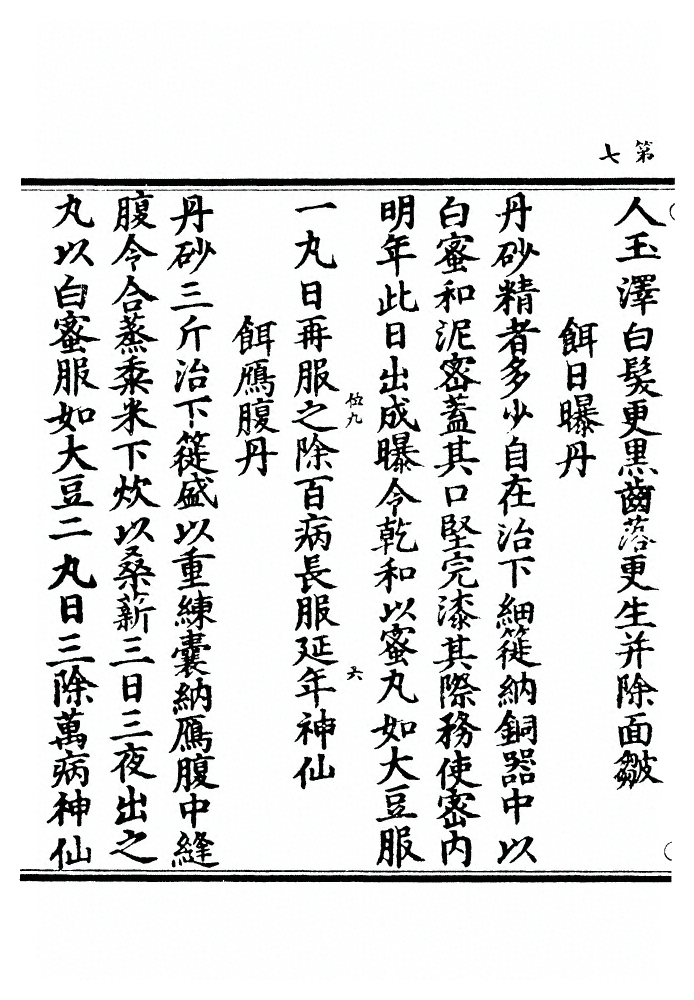 第七
人玉澤白髮更黑齒落更生并除面皺
餌日曝丹
丹砂精者多少自在治下細簁納銅器中以
白蜜和泥密蓋其口堅完漆其際務使密内
明年此日出成曝令乾和以蜜丸如大豆服
伍九
一丸日再服之除百病長服延年神仙
六
餌鴈腹丹
丹砂三斤治下簁盛以重練囊納鴈腹中縫
腹令合蒸粢米下炊以桑薪三日三夜出之
丸以白蜜服如大豆二丸日三除萬病神仙